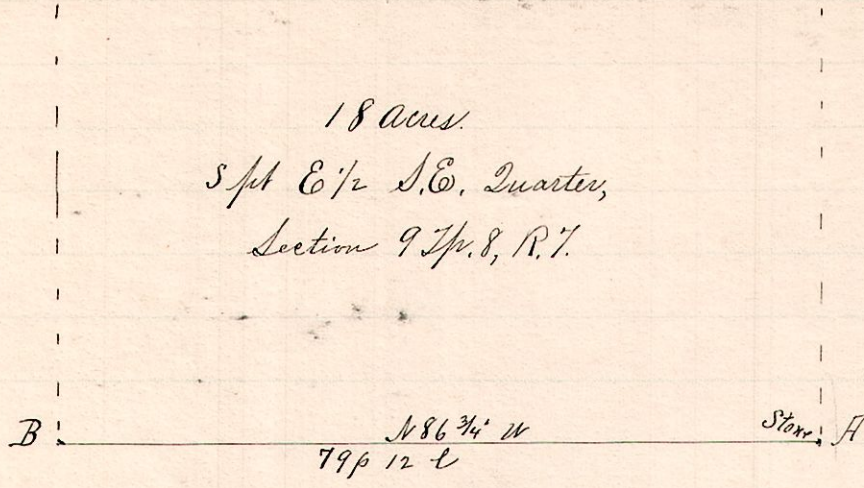 18 Acres.
S pt E 1/2 S.E. Quarter,
Section 9 Tp. 8, R. 7.
N 86 3/4° W
Stone
B
A
79 p 12 l